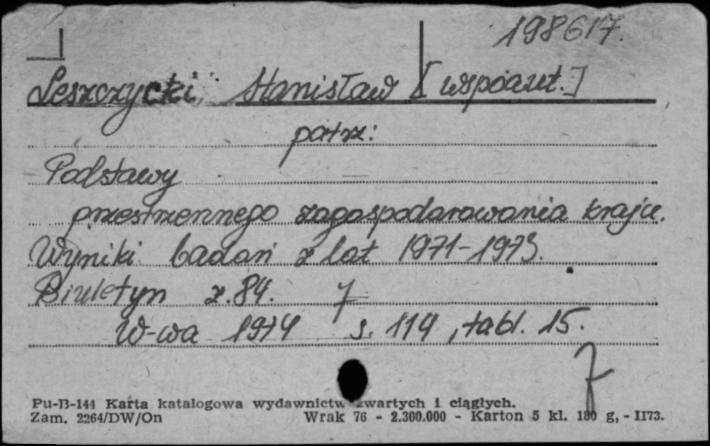 198617.
Leszczycki, Stanisław [współaut.]
patrz:
Podstawy
przestrzennego zagospodarowania kraju.
Wyniki badań z lat 1971-1973.
Biuletyn z. 84.
W-wa 1974 s. 114, tabl. 15.
Pu-B-144 Karta katalogowa wydawnictw zwartych i ciągłych.
Zam. 2264/DW/On Wrak 76 - 2.300.000 - Karton 5 kl. 180 g, - II73.